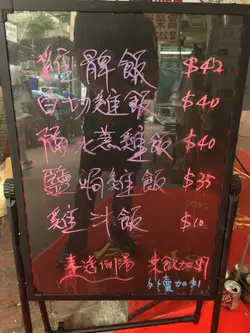 雞髀飯 $42
白切雞飯 $40
隔水蒸雞飯 $40
鹽焗雞飯 $35
雞汁飯 $10
奉送例湯 凍飲加$1
外賣加$1